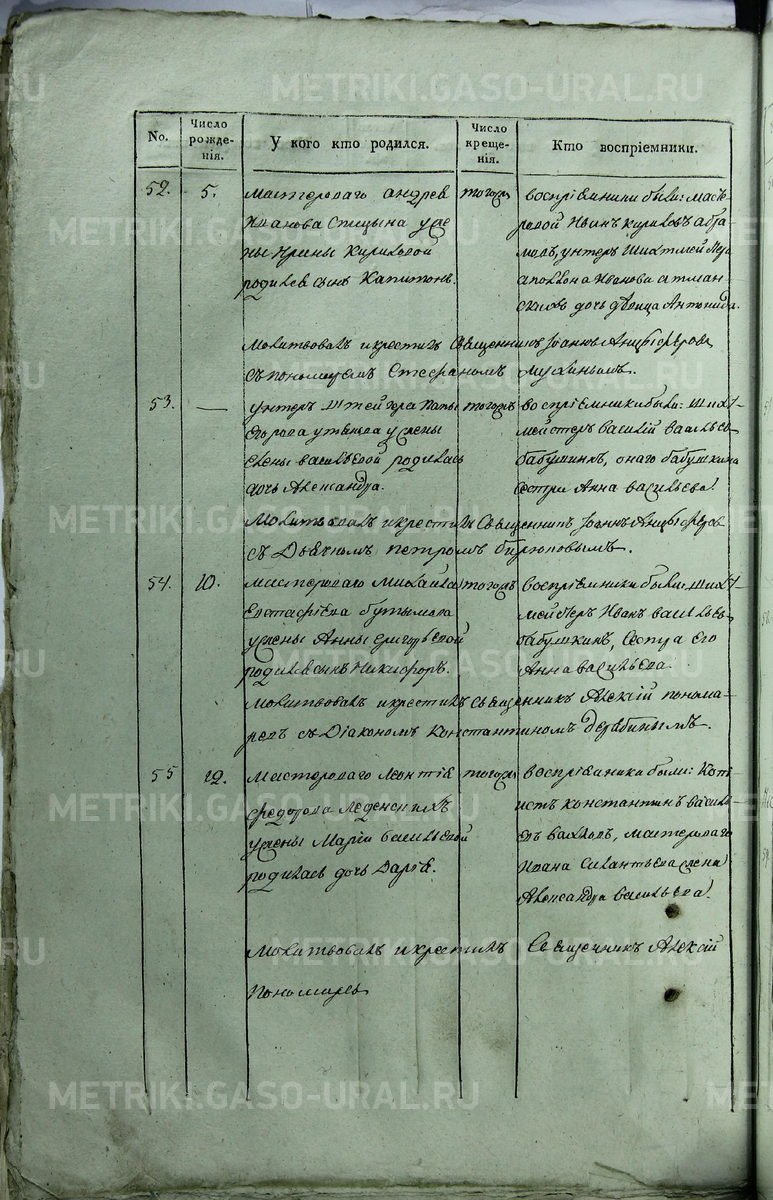 METRIKI.GASO-URAL.RU
No.
Число рожденія.
У кого кто родился.
Число крещенія.
Кто воспріемники.
52. 5. Мастероваго Андрея
Иванова Спицына у же
ны Ирины Кириловой
родился сынъ Капитонъ.
тогожъ
воспріемники были: масте
ровой Иванъ Кириловъ Абра
мовъ, унтеръ Шихтмейстера
Аполлона Иванова Атман
скихъ дочь девица Антонида.
Молитвовалъ и крестилъ Священникъ Іоаннъ Анцыферовъ
съ пономаремъ Стефаномъ Мухинымъ.
53. — унтеръ Штейгера
Егорова у жены
Елены Васильевой родилась
дочь Александра.
тогожъ
воспріемники были: Шихт
мейстеръ Василій Васильевъ
Бабушкинъ, онаго Бабушкина
сестра Анна Васильева.
Молитвовалъ и крестилъ Священникъ Іоаннъ Анцыферовъ
съ Дьячкомъ Петромъ Бирюковымъ.
54. 10. Мастероваго Михайла
Евстафіева Бутымова
у жены Анны Григорьевой
родился сынъ Никифоръ.
тогожъ
воспріемники были: Шихт
мейстеръ Иванъ Васильевъ
Бабушкинъ, Сестра его
Анна Васильева.
Молитвовалъ и крестилъ Священникъ Алексій Понома
ревъ съ Діакономъ Константиномъ Дерябинымъ.
55 12. Мастероваго Леонтія
Федотова Леденскихъ
у жены Маріи Васильевой
родилась дочь Дарія.
тогожъ
воспріемники были: Копі
истъ Константинъ Василь
евъ Вахловъ, мастероваго
Ивана Силантьева жена
Александра Васильева.
Молитвовалъ и крестилъ Священникъ Алексій
Пономаревъ